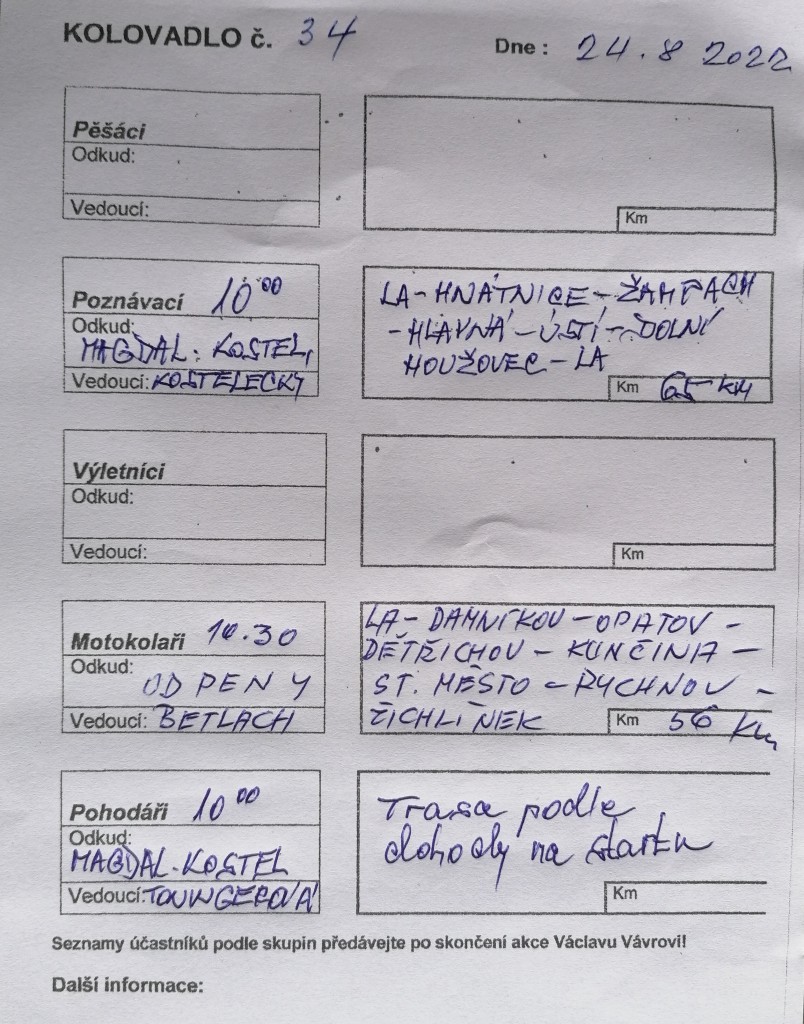 KOLOVADLO č. 34
Dne : 24.8 2022
Pěšáci
Odkud:
Vedoucí:
Km
Poznávací 10⁰⁰
Odkud:
MAGDAL. KOSTEL,
Vedoucí: KOSTELECKÝ
LA - HNÁTNICE - ŽAMPACH
- HLAVNÁ - ÚSTÍ - DOLNÍ
HOUŽOVEC - LA
Km 65 KM
Výletníci
Odkud:
Vedoucí:
Km
Motokolaři 10.30
Odkud:
OD PENY
Vedoucí: BETLACH
LA - DAMNÍKOV - OPATOV -
DĚTŘICHOV - KUNČINA -
ST. MĚSTO - RYCHNOV -
ŽICHLÍNEK
Km 56 Km
Pohodáři 10⁰⁰
Odkud:
MAGDAL. KOSTEL
Vedoucí:
Trasa podle
dohody na startu
Km
Seznamy účastníků podle skupin předávejte po skončení akce Václavu Vávrovi!
Další informace: